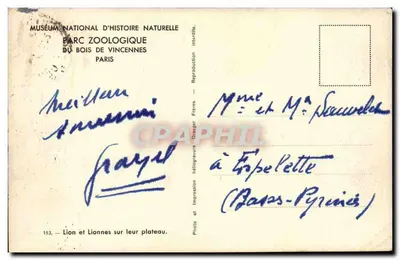 MUSEUM NATIONAL D'HISTOIRE NATURELLE
PARC ZOOLOGIQUE
DU BOIS DE VINCENNES
PARIS
Meilleur
souvenir
163. - Lion et Lionnes sur leur plateau.
Photo et impression héliogravure Draeger Frères - Reproduction interdite.
CARTAPHILIE.COM
Mme et Mr
à Espelette
(Basses-Pyrénées)